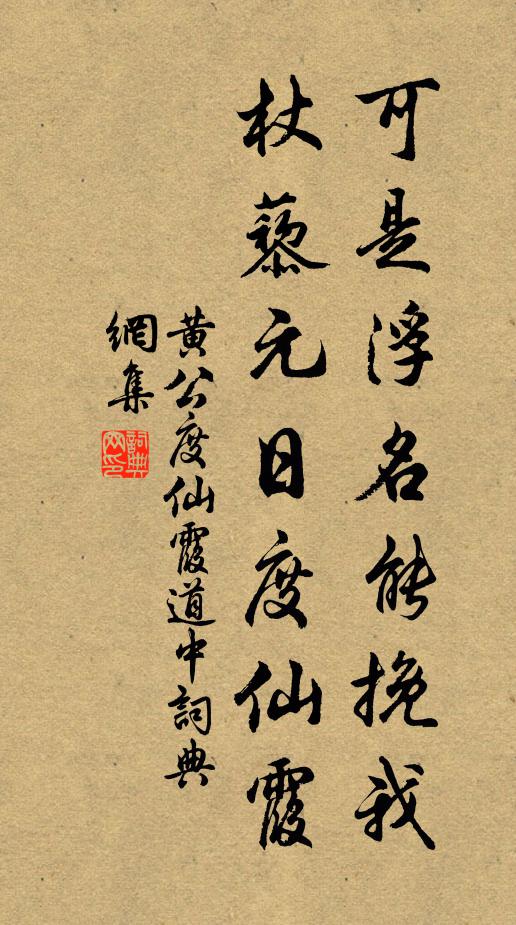 可是浮名能挽我
杖藜元日度仙霞
黄公度仙霞道中詞典
網集
詞典网印